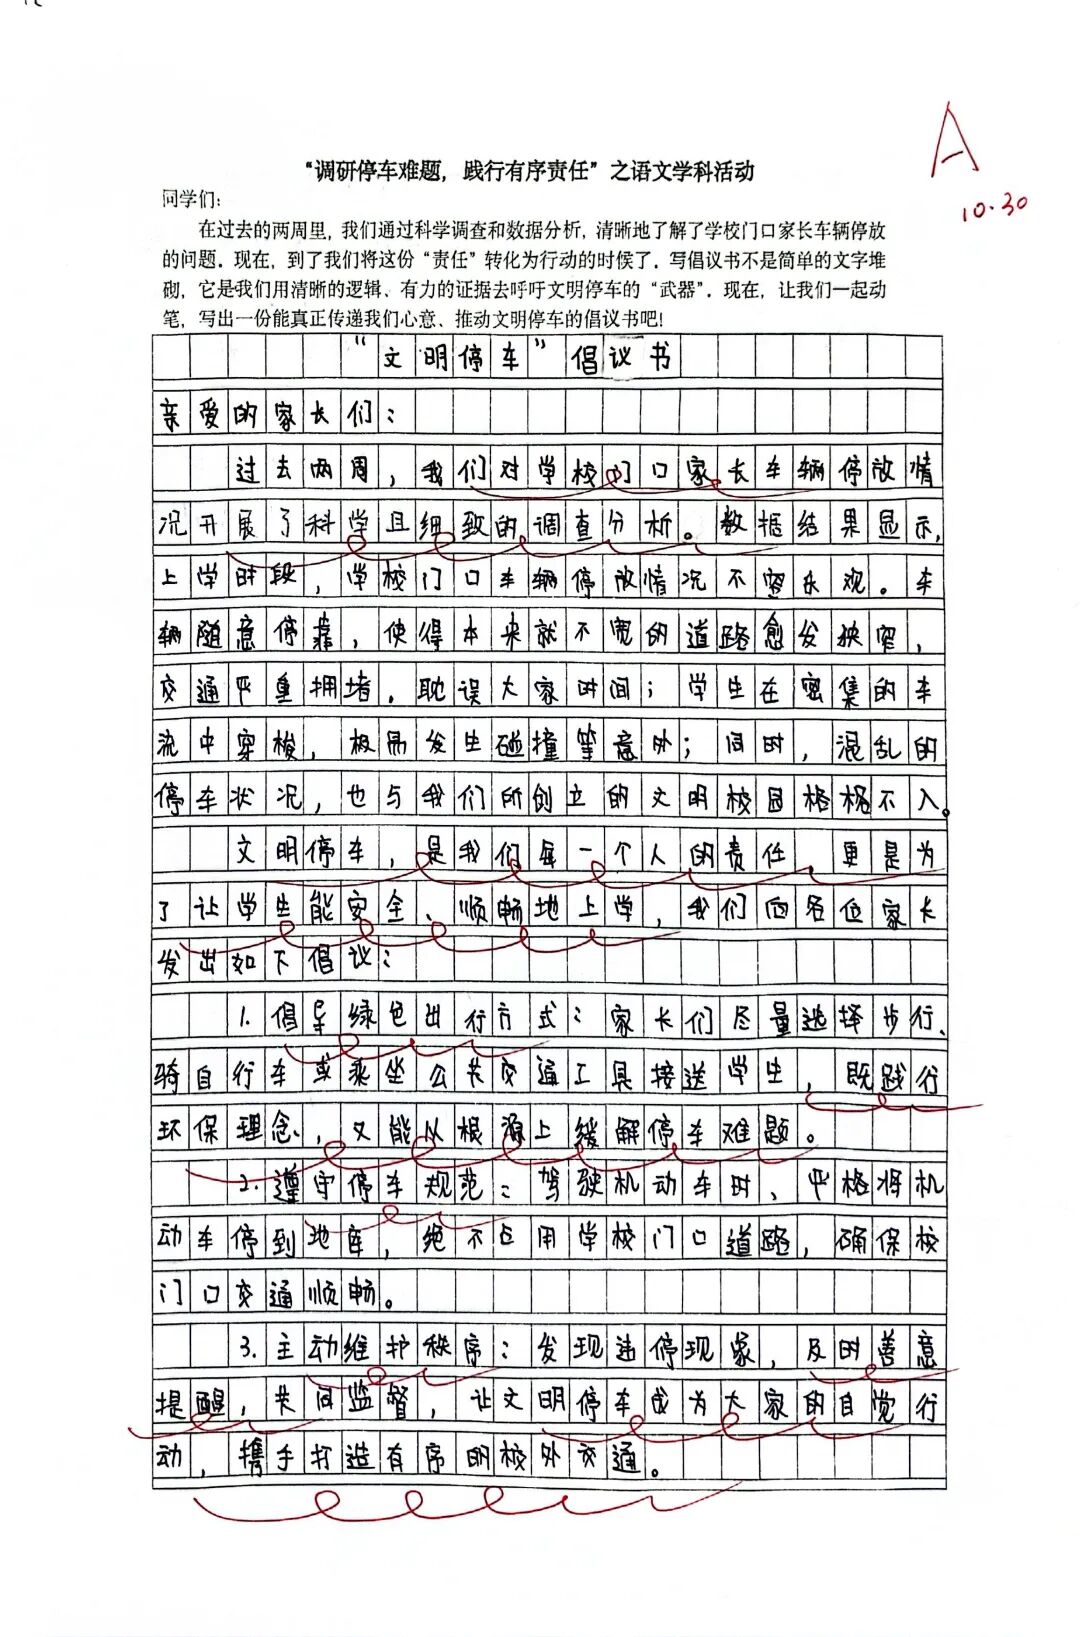 A
10.30
“调研停车难题，践行有序责任”之语文学科活动
同学们：
在过去的两周里，我们通过科学调查和数据分析，清晰地了解了学校门口家长车辆停放
的问题．现在，到了我们将这份“责任”转化为行动的时候了．写倡议书不是简单的文字堆
砌，它是我们用清晰的逻辑、有力的证据去呼吁文明停车的“武器”．现在，让我们一起动
笔，写出一份能真正传递我们心意、推动文明停车的倡议书吧！
“文明停车”倡议书
亲爱的家长们：
过去两周，我们对学校门口家长车辆停放情
况开展了科学且细致的调查分析。数据结果显示，
上学时段，学校门口车辆停放情况不容乐观。车
辆随意停靠，使得本来就不宽的道路愈发狭窄，
交通严重拥堵，耽误大家时间；学生在密集的车
流中穿梭，极易发生碰撞等意外；同时，混乱的
停车状况，也与我们所创立的文明校园格格不入。
文明停车，是我们每一个人的责任，更是为
了让学生能安全、顺畅地上学，我们向各位家长
发出如下倡议：
1.倡导绿色出行方式：家长们尽量选择步行、
骑自行车或乘坐公共交通工具接送学生，既践行
环保理念，又能从根源上缓解停车难题。
2.遵守停车规范：驾驶机动车时，严格将机
动车停到地库，绝不占用学校门口道路，确保校
门口交通顺畅。
3.主动维护秩序：发现违停现象，及时善意
提醒，共同监督，让文明停车成为大家的自觉行
动，携手打造有序的校外交通。